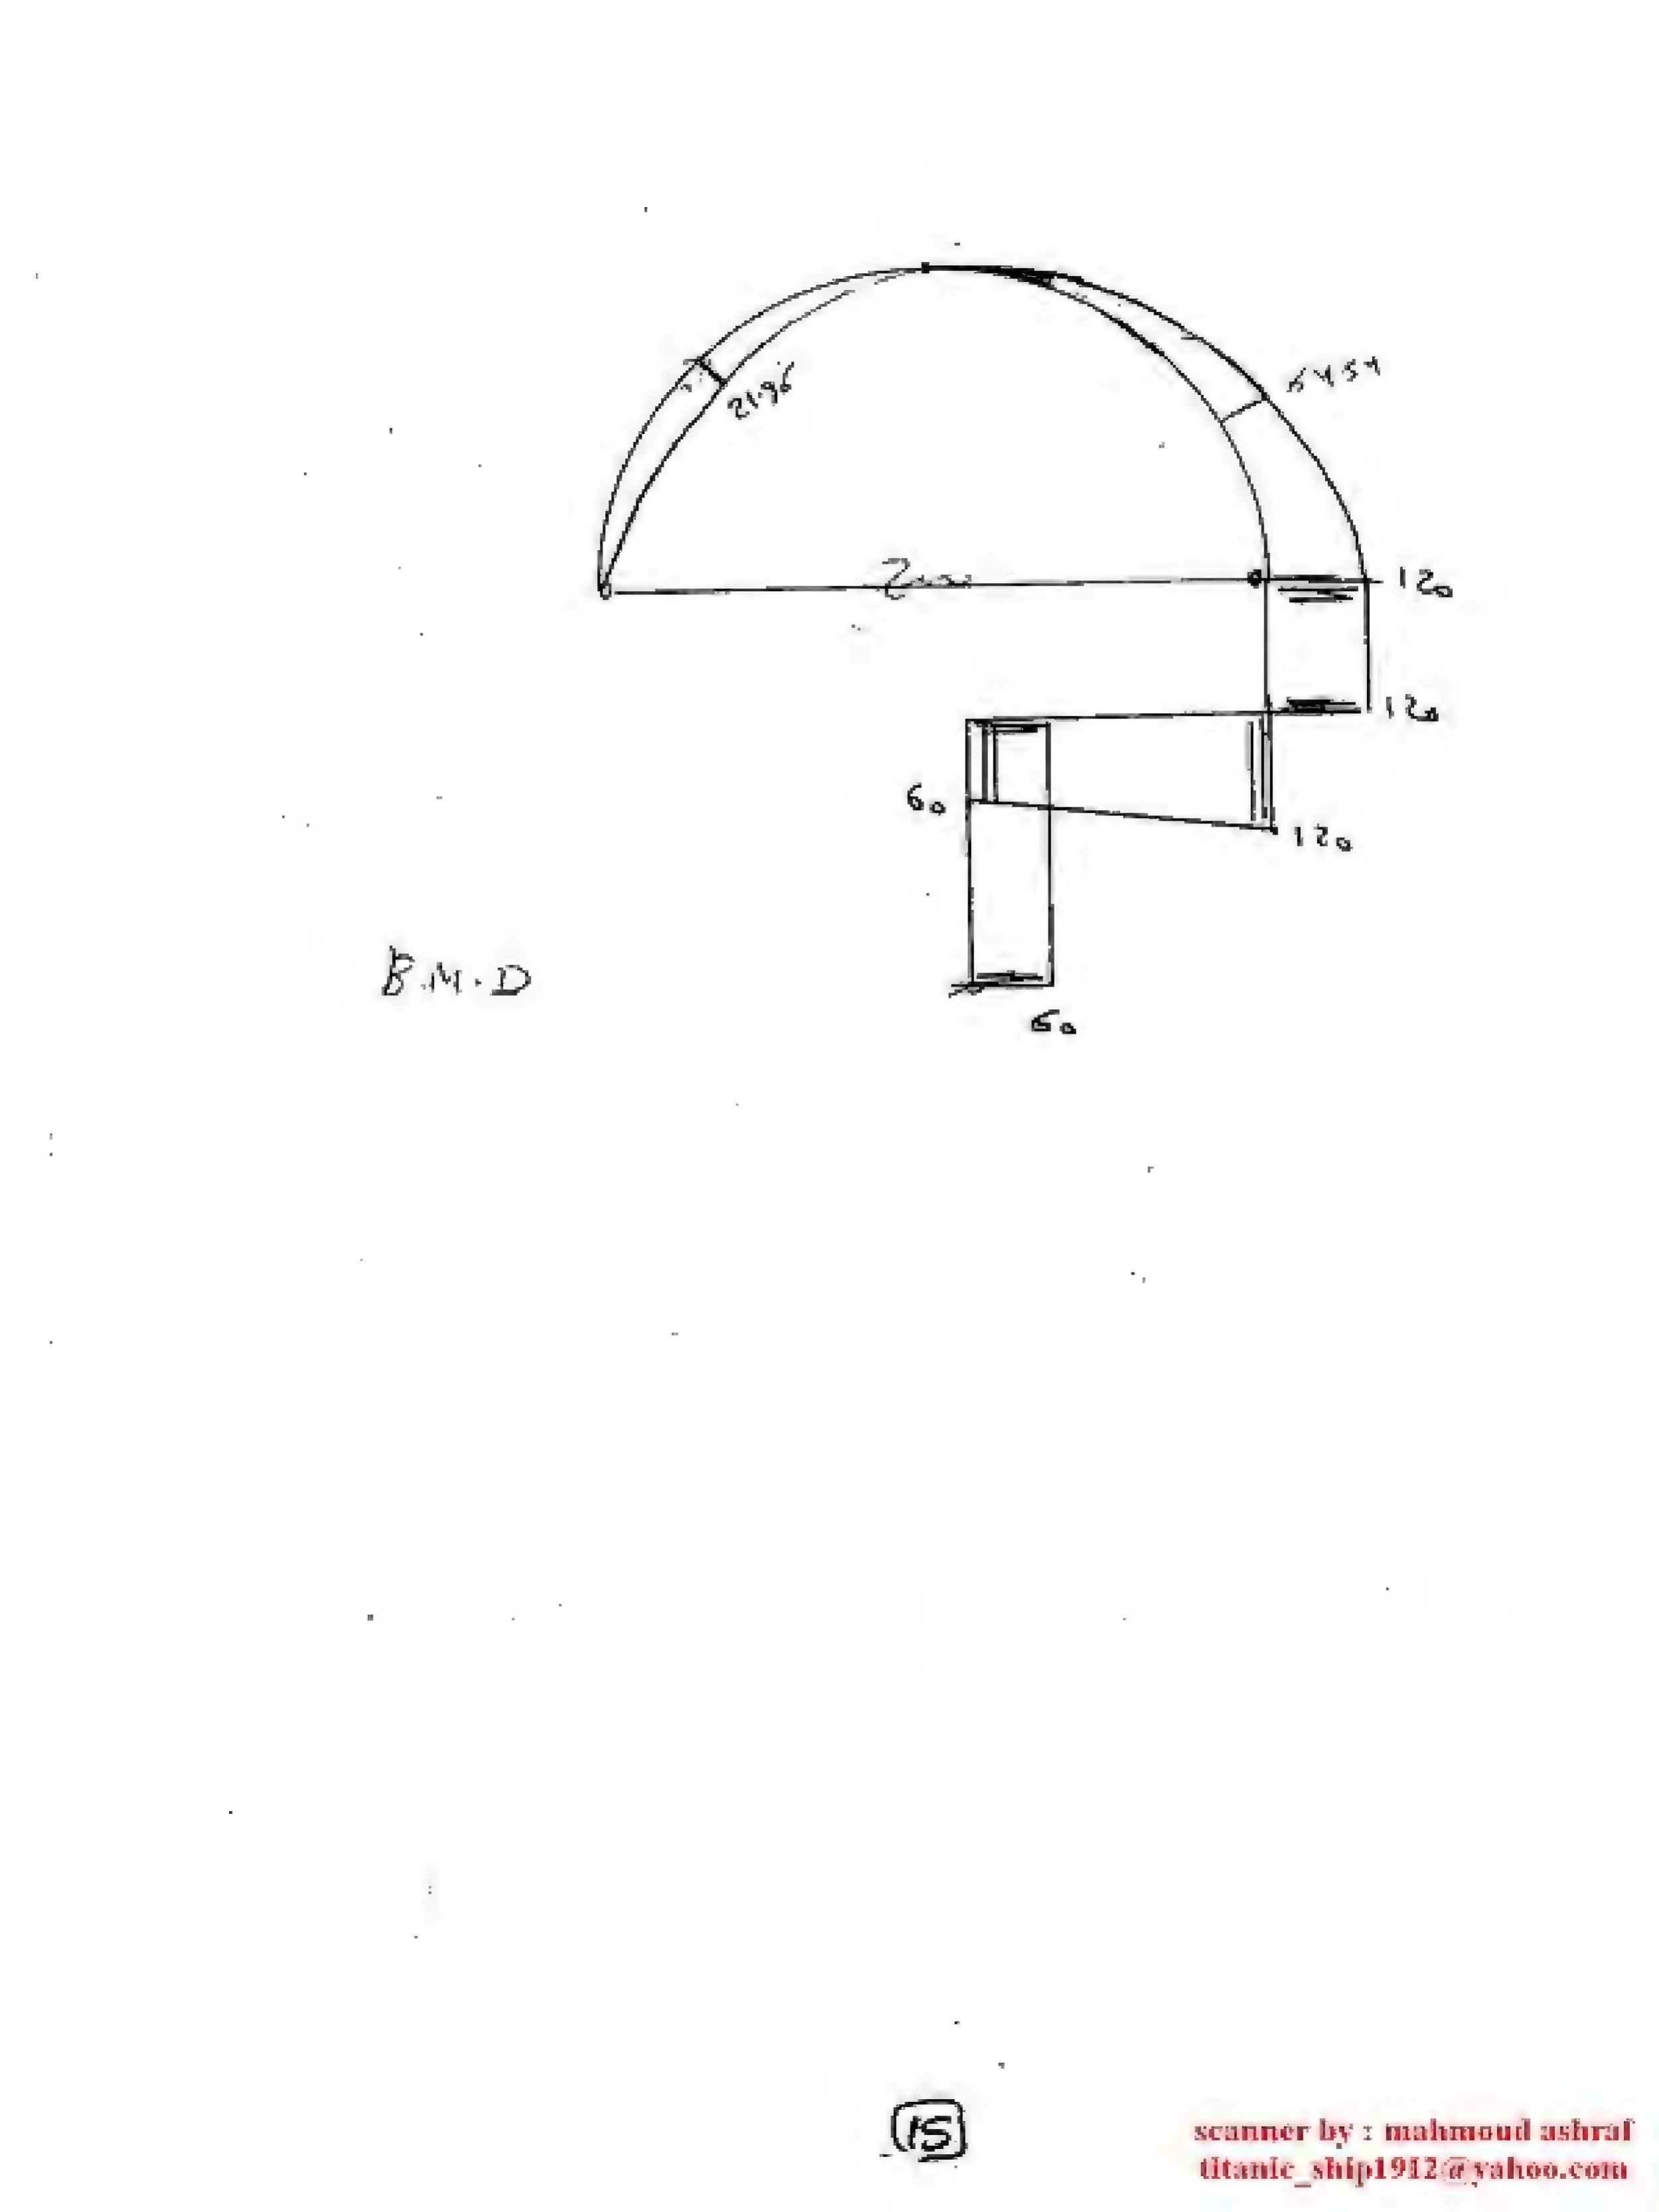 21.96
54.54
Zero
120
120
60
120
B.M.D
60
15
scanner by : mahmoud ashraf
titanic_ship1912@yahoo.com